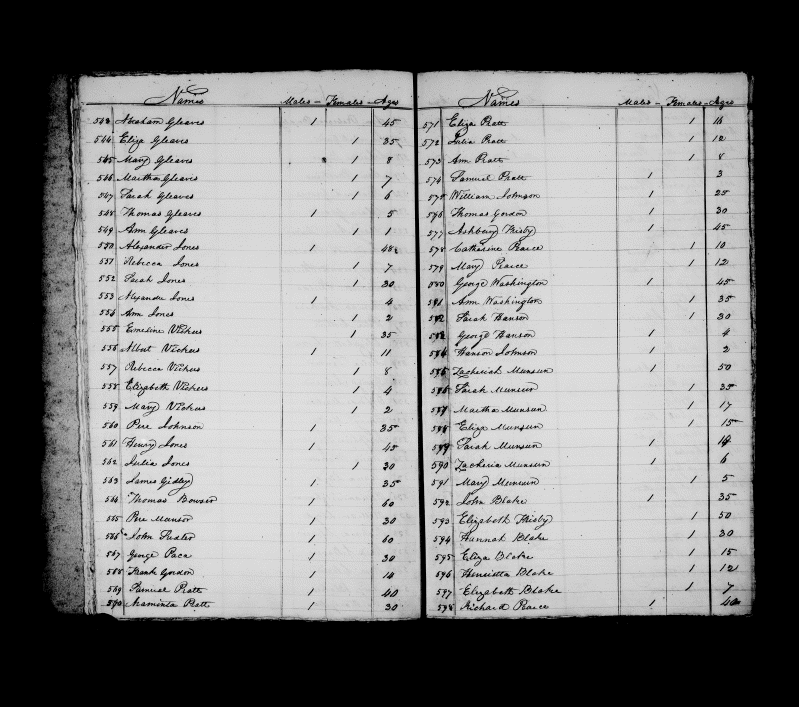 Names Males - Females - Ages
543 Abraham Gleaves 1 45
544 Eliza Gleaves 1 35
545 Mary Gleaves 1 8
546 Martha Gleaves 1 7
547 Sarah Gleaves 1 6
548 Thomas Gleaves 1 5
549 Ann Gleaves 1 1
550 Alexander Jones 1 48
551 Rebecca Jones 1 7
552 Sarah Jones 1 30
553 Alexander Jones 1 4
554 Ann Jones 1 2
555 Emeline Vickers 1 35
556 Albert Vickers 1 11
557 Rebecca Vickers 1 8
558 Elizabeth Vickers 1 4
559 Mary Vickers 1 2
560 Pere Johnson 1 35
561 Henry Jones 1 45
562 Julia Jones 1 30
563 James Gidley 1 35
564 Thomas Bowser 1 60
565 Pere Manson 1 30
566 John 1 60
567 George Paca 1 30
568 Frank Gordon 1 14
569 Samuel Pratt 1 40
570 Araminta Pratt 1 30
Names Males - Females - Ages
571 Eliza Pratt 1 16
572 Julia Pratt 1 12
573 Ann Pratt 1 8
574 Samuel Pratt 1 3
575 William Johnson 1 25
576 Thomas Gordon 1 30
577 Ashbery Frisby 1 45
578 Catharine Pearce 1 10
579 Mary Pearce 1 12
580 George Washington 1 45
581 Ann Washington 1 35
582 Sarah Hanson 1 30
583 George Hanson 1 4
584 Hanson Johnson 1 2
585 Zacheriah Munsun 1 50
586 Sarah Munsun 1 35
587 Martha Munsun 1 17
588 Eliza Munsun 1 15
589 Sarah Munsun 1
590 Zacheria Munsun 1 6
591 Mary Munsun 1 5
592 John Blake 1 35
593 Elizabeth Frisby 1 50
594 Hannah Blake 1 30
595 Eliza Blake 1 15
596 Henrietta Blake 1 12
597 Elizabeth Blake 1 7
598 Richard Pearce 1 40